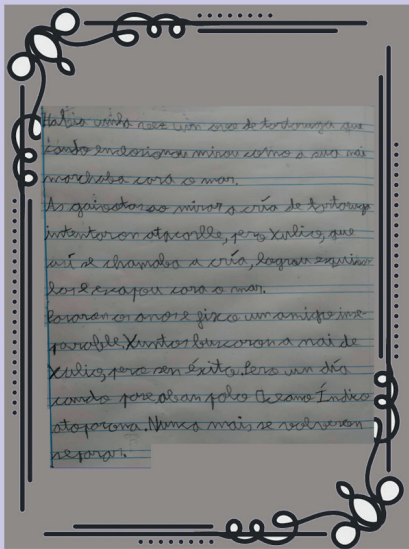 Había unha vez un ovo de tortoruga que
cando eclosionou mirou como a sua nai
marchaba cara o mar.
As gaivotas ao mirar a cría de tortoruga
intentaron atacarlle, pero Xulio, que
así se chamaba a cría, logrou esquiva
los e escapou cara o mar.
Pasaron os anos e fixco un amigo inse
parable. Xuntos buscaron a nai de
Xulio, pero sen éxito. Pero un día
cando paseaban polo Oceano Índico
atoparona. Nunca mais se volveron
separar.